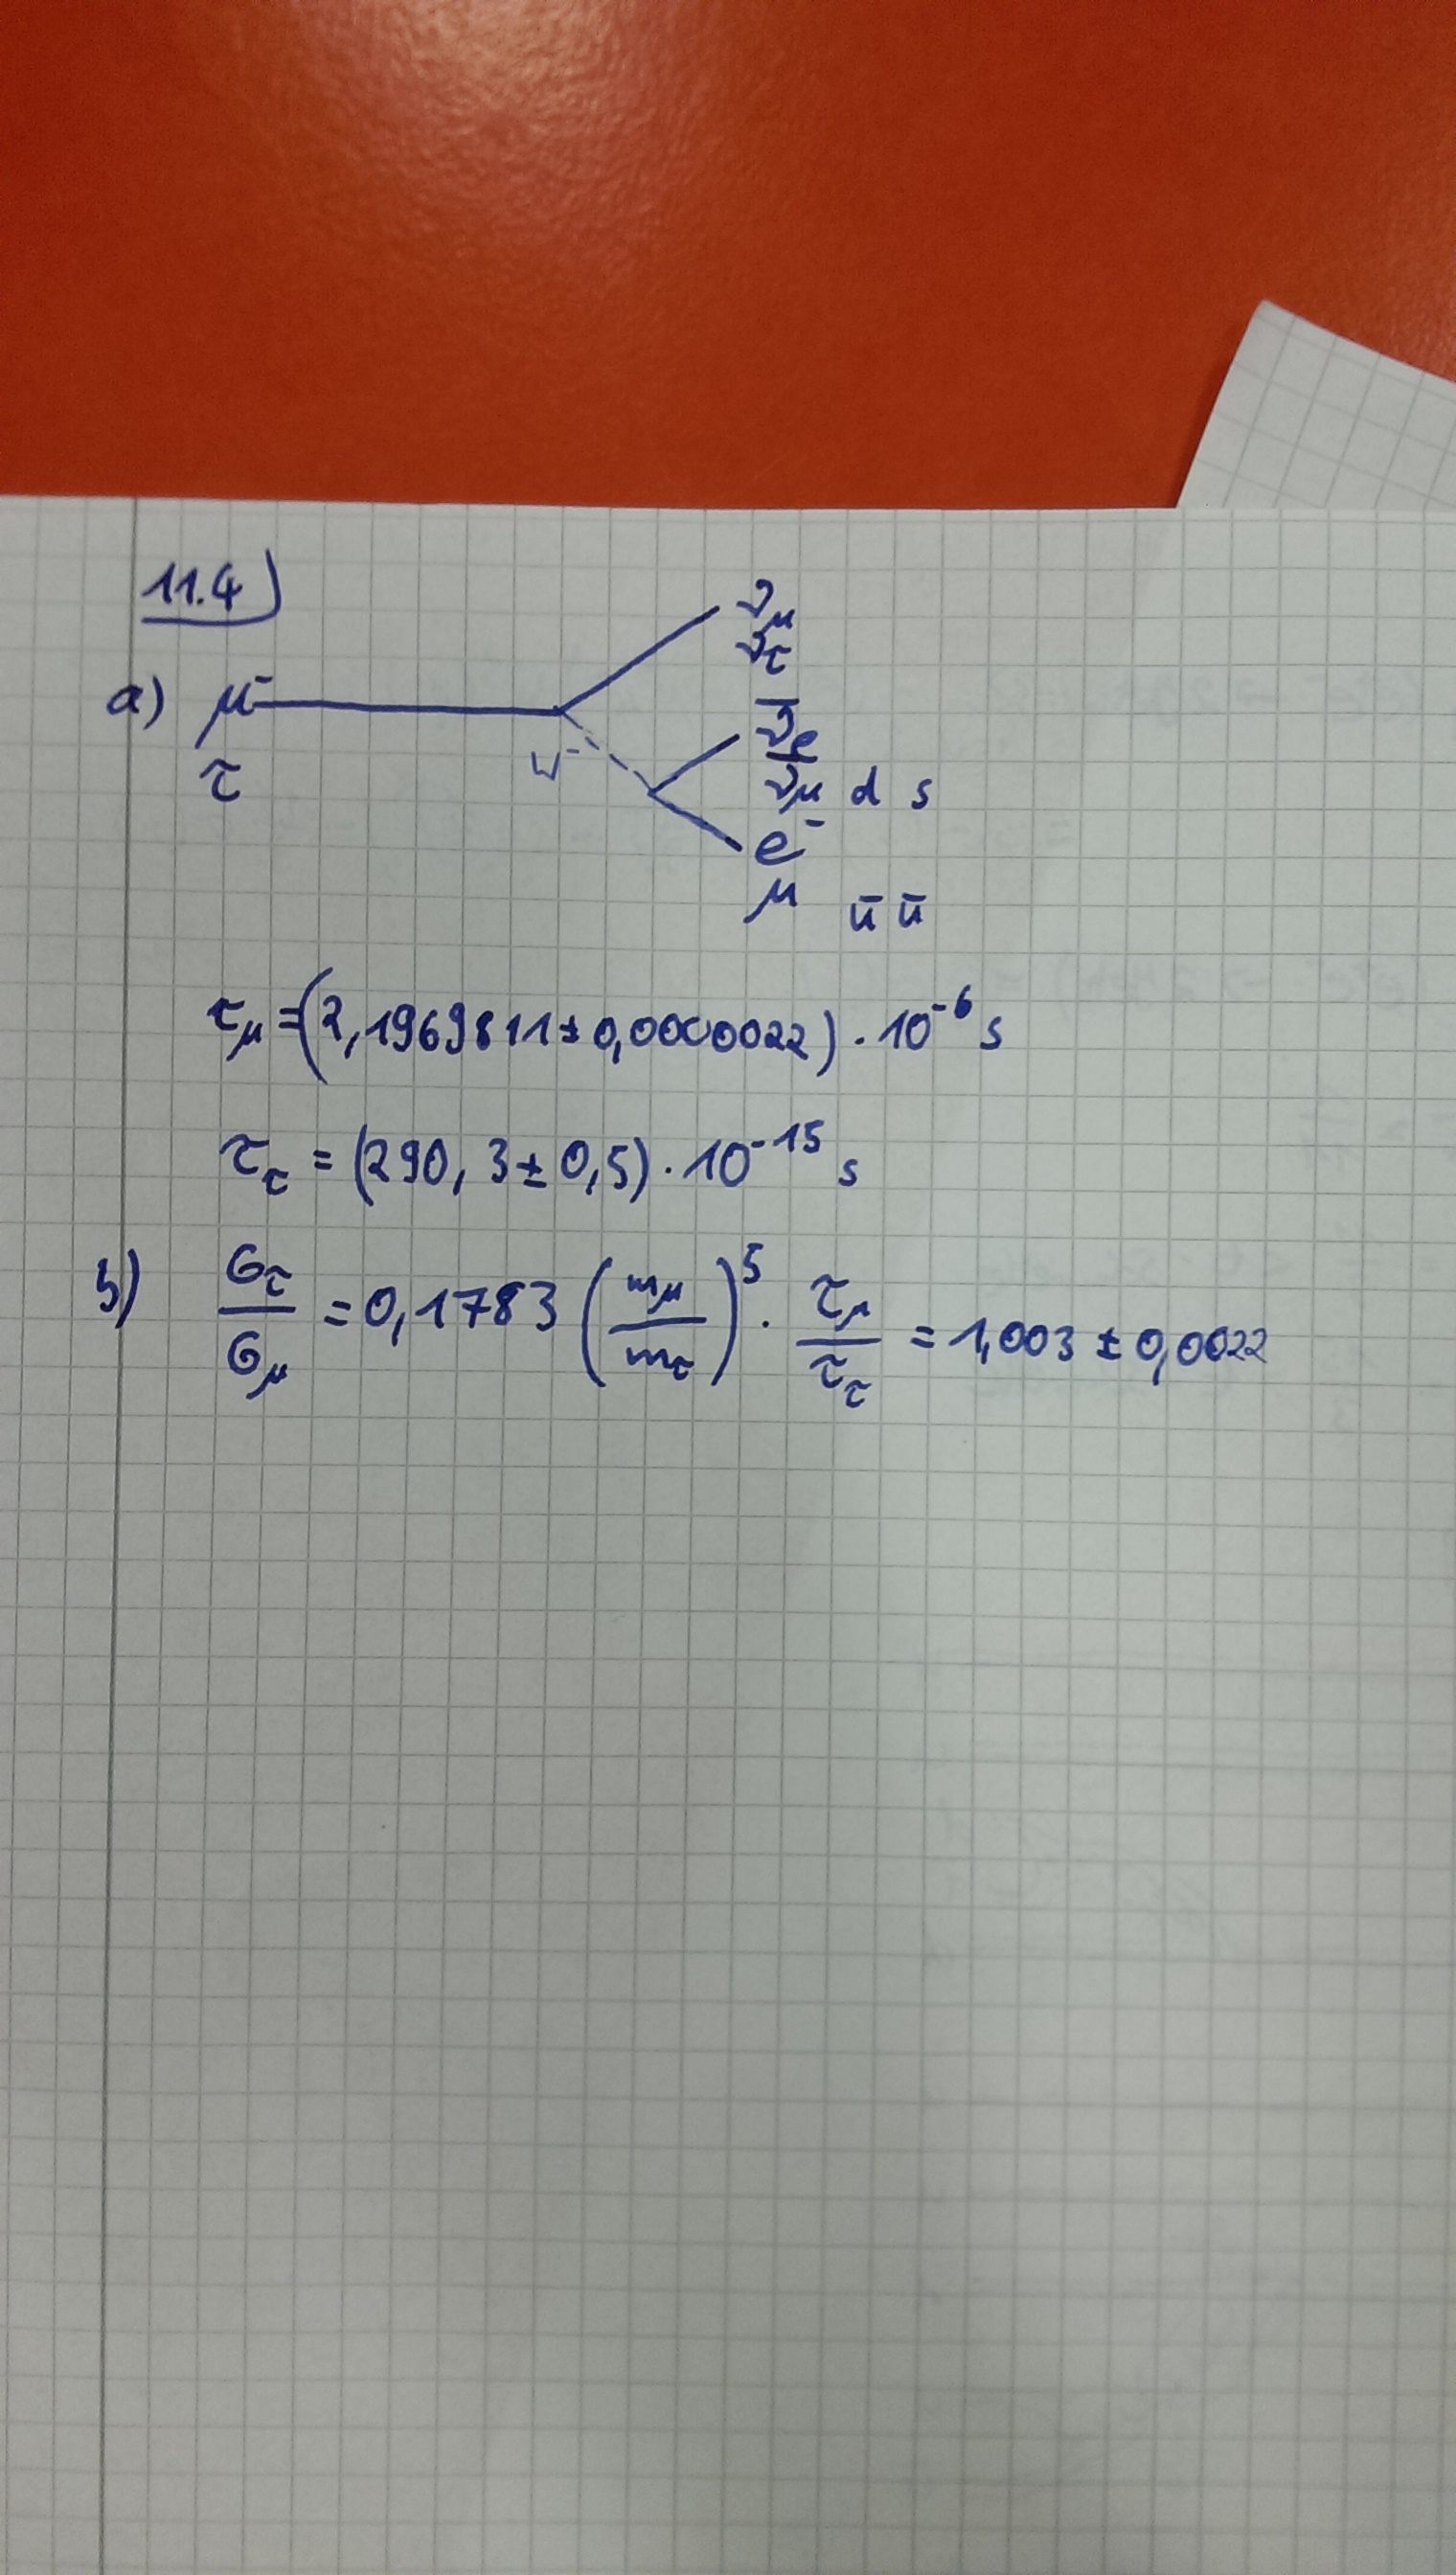 11.4)
a) μ⁻ τ W⁻ ν_μ ν_τ
ν̄_e ν̄_μ d s
e⁻ μ ū ū
τ_μ = (2,1969811 ± 0,0000022) · 10⁻⁶ s
τ_τ = (290,3 ± 0,5) · 10⁻¹⁵ s
b) G_τ / G_μ = 0,1783 (m_μ / m_τ)⁵ · τ_μ / τ_τ = 1,003 ± 0,0022